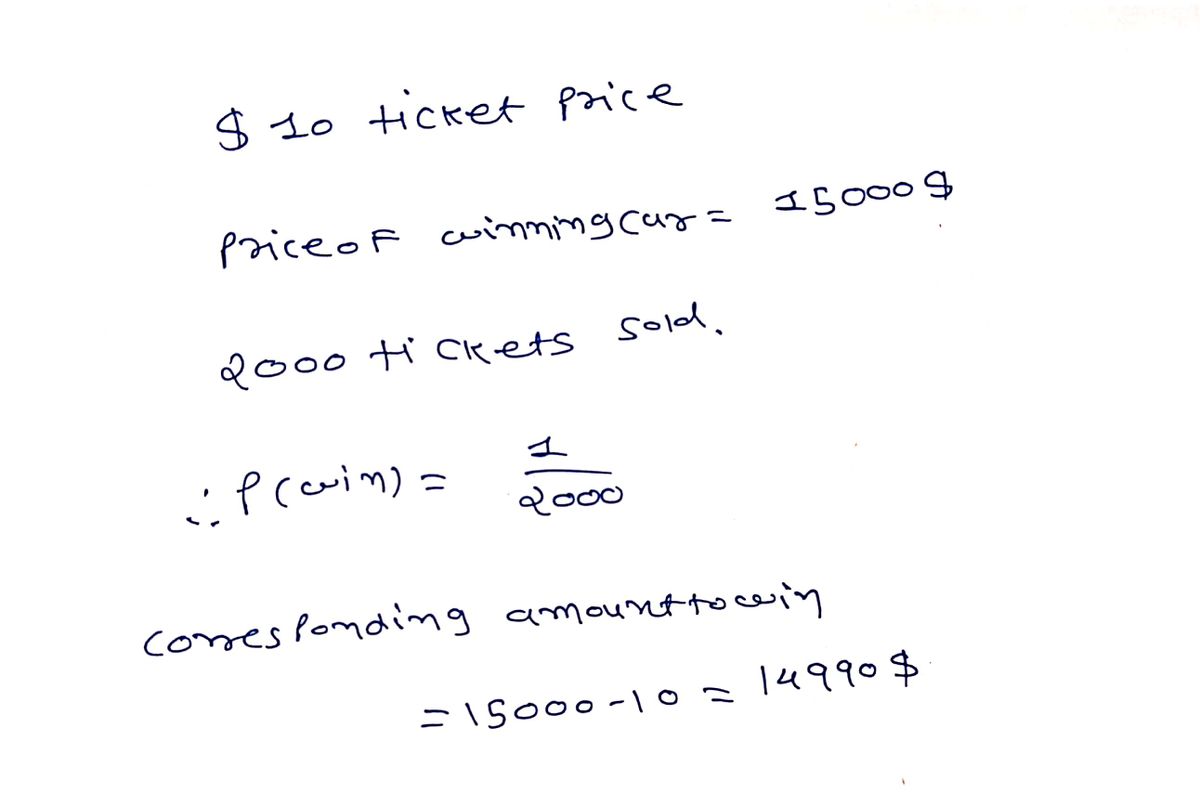 $ 10 ticket price
price of winning car = 15000 $
2000 tickets sold.
∴ P(win) = 1/2000
corresponding amount to win
= 15000 - 10 = 14990 $